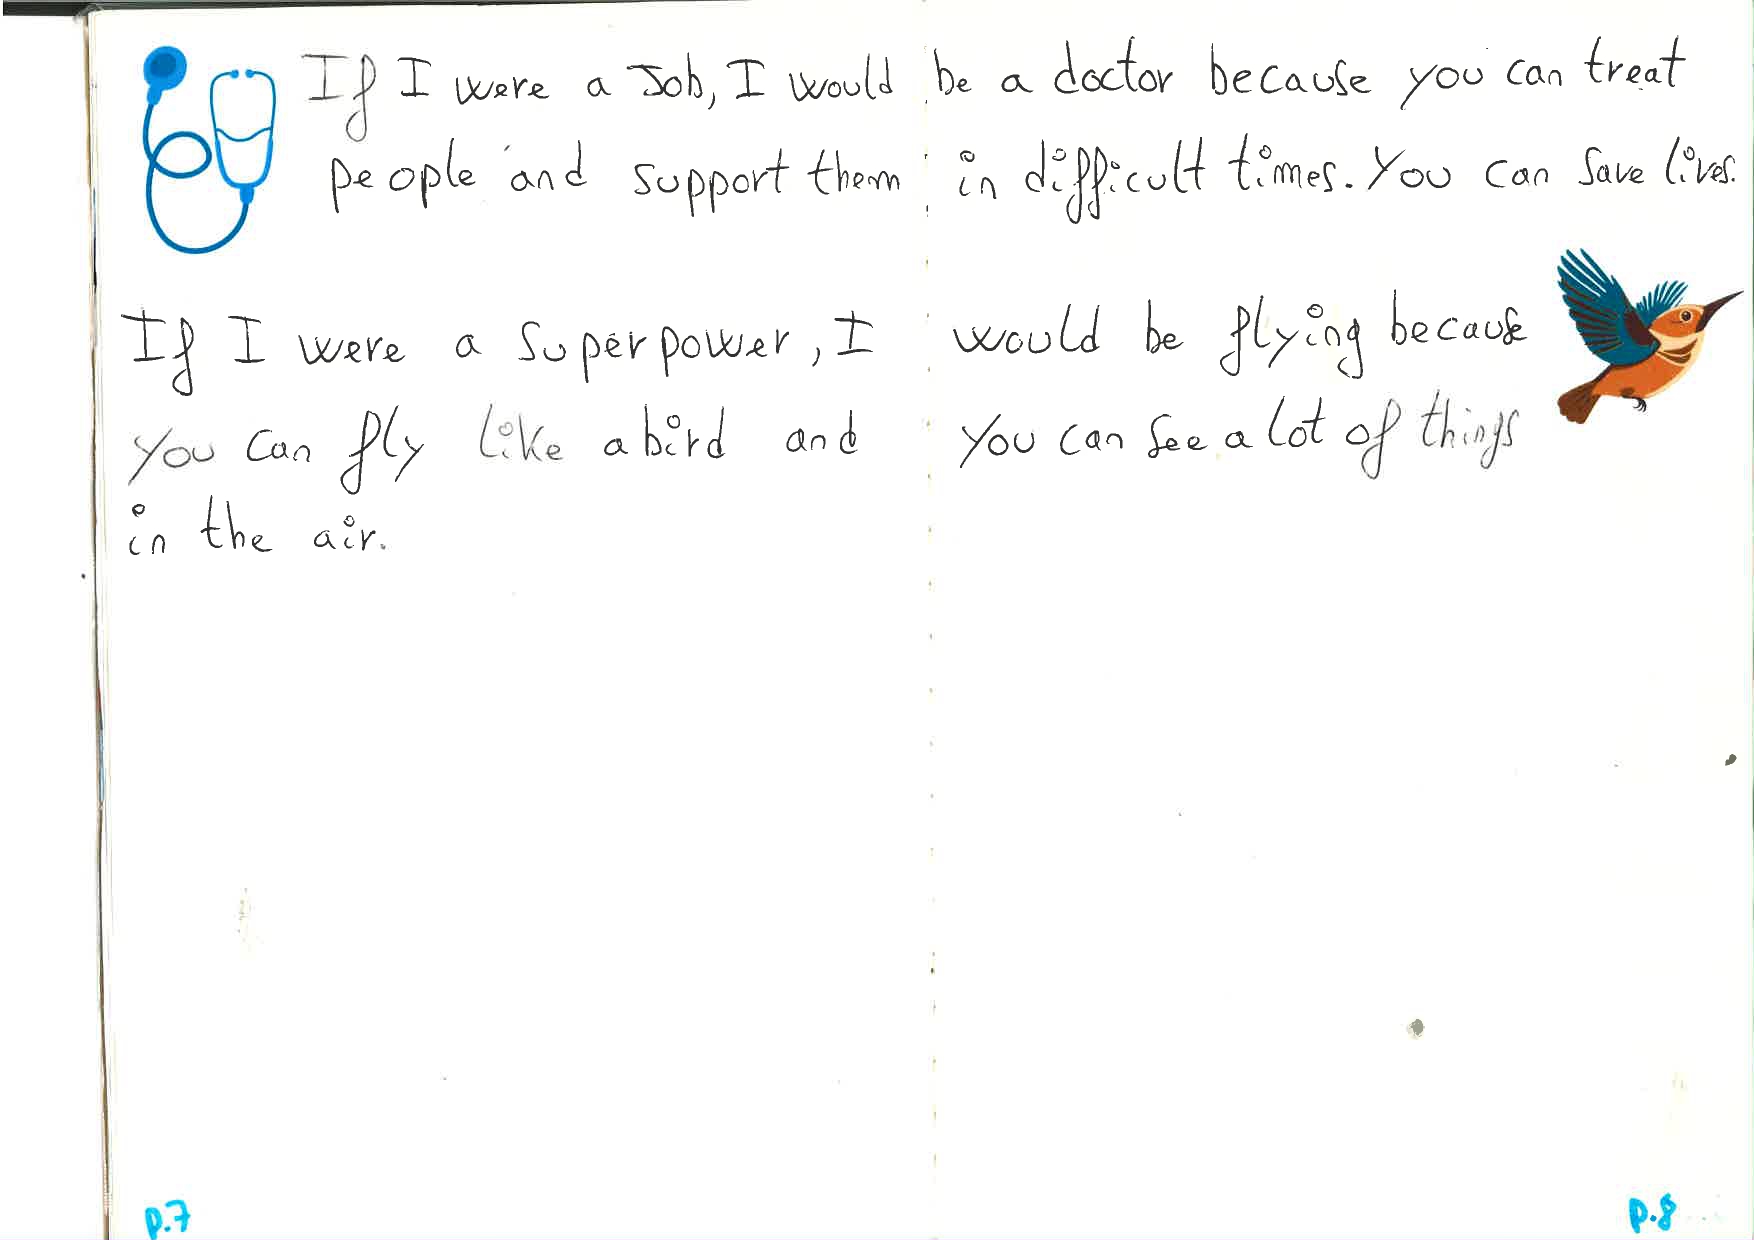 If I were a Job, I would be a doctor because you can treat
people and support them in difficult times. You can save lives.
If I were a superpower, I would be flying because
you can fly like a bird and you can see a lot of things
in the air.
p.7
p.8